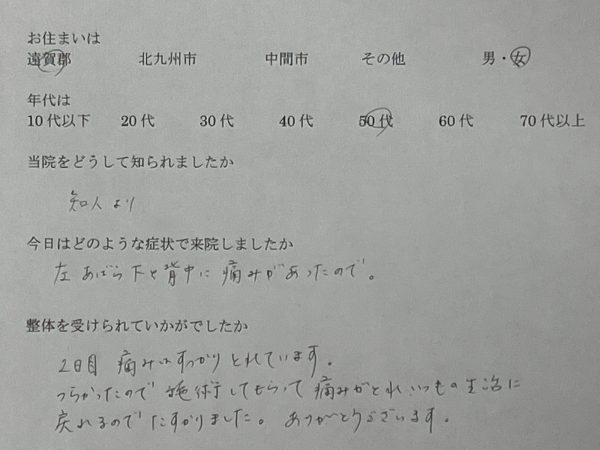 お住まいは
遠賀郡 北九州市 中間市 その他 男・女
年代は
10代以下 20代 30代 40代 50代 60代 70代以上
当院をどうして知られましたか
知人より
今日はどのような症状で来院しましたか
左あばら下と背中に痛みがあったので。
整体を受けられていかがでしたか
2日目 痛みはすっかりとれています。
つらかったので施術してもらって痛みがとれいつもの生活に
戻れるのでたすかりました。ありがとうございます。